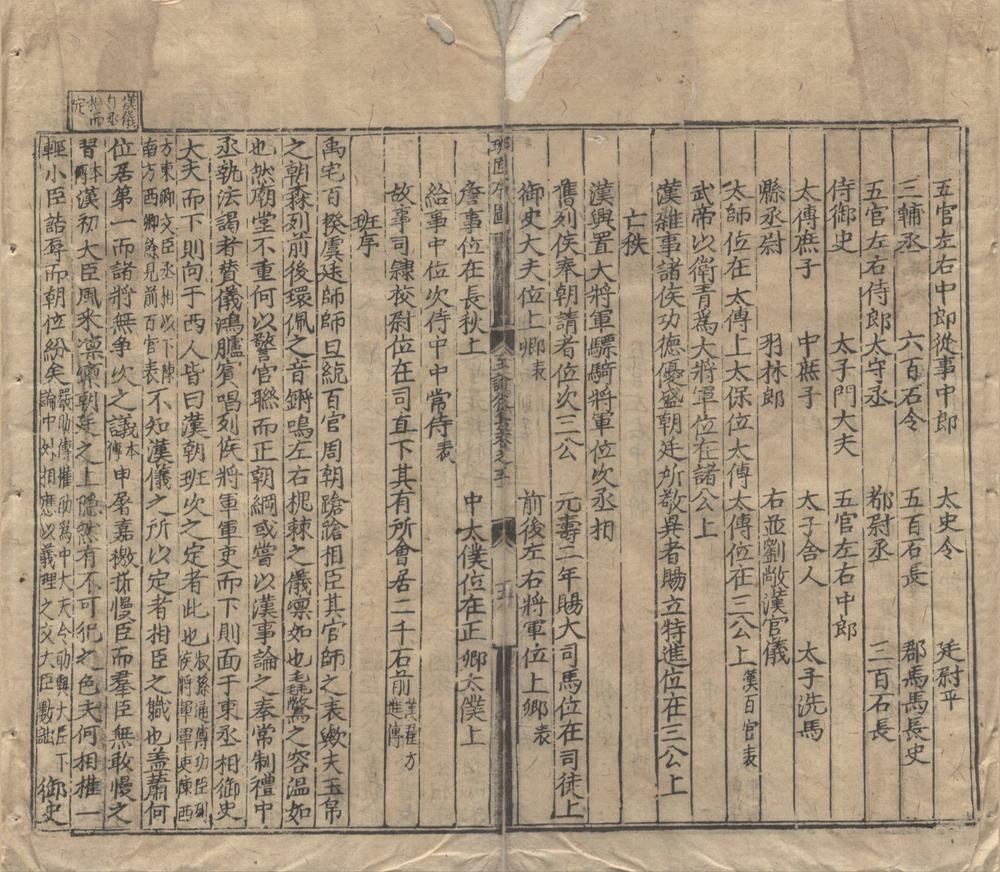 五官左右中郎 從事中郎 太史令 廷尉平
三輔丞 六百石令 五百石長 郡馬長史
五官左右侍郎 太守丞 都尉丞 三百石長
侍御史 太子門大夫 五官左右中郎
太傅庶子 中庶子 太子舍人 太子洗馬
縣丞尉 羽林郎 右並劉敞漢官儀
太師位在太傅上太保位太傅太傅位在三公上漢百官表
武帝以衛青爲大將軍位在諸公上
漢雜事諸侯功德優盛朝廷所敬異者賜立特進位在三公上
亡秩
漢興置大將軍驃騎將軍位次丞相
舊列侯奉朝請者位次三公 元壽二年賜大司馬位在司徒上
御史大夫位上卿表 前後左右將軍位上卿表
詹事位在長秋上 中太僕位在正卿太僕上
給事中位次侍中中常侍表
故事司隷校尉位在司直下其有所會居二千石前翟方進傳
班序
禹宅百揆虞廷師師旦統百官周朝蹌蹌相臣其官師之表歟夫玉帛
之朝森列前後環佩之音鏘鳴左右槐棘之儀凛如也鴛鷺之容温如
也然廟堂不重何以警官聯而正朝綱或嘗以漢事論之奉常制禮中
丞執法謁者賛儀鴻臚賔唱列侯將軍軍吏而下則面于東丞相御史
大夫而下則向于西人皆曰漢朝班次之定者此也叔孫通傳功臣列侯將軍軍吏陳西
方東鄉文臣丞相以下陳南方西鄉餘見前百官表不知漢儀之所以定者相臣之職也盖蕭何
位居第一而諸將無争次之議本傳申屠嘉檄折慢臣而羣臣無敢慢之
習本傳漢初大臣風采凛凛朝廷之上隠然有不可犯之色夫何相權一
輕小臣詰辱而朝位紛矣嚴助傳擢助爲中大夫令助與大臣下論中外相應以義理之文大臣數詘御史
漢儀自丞相而定